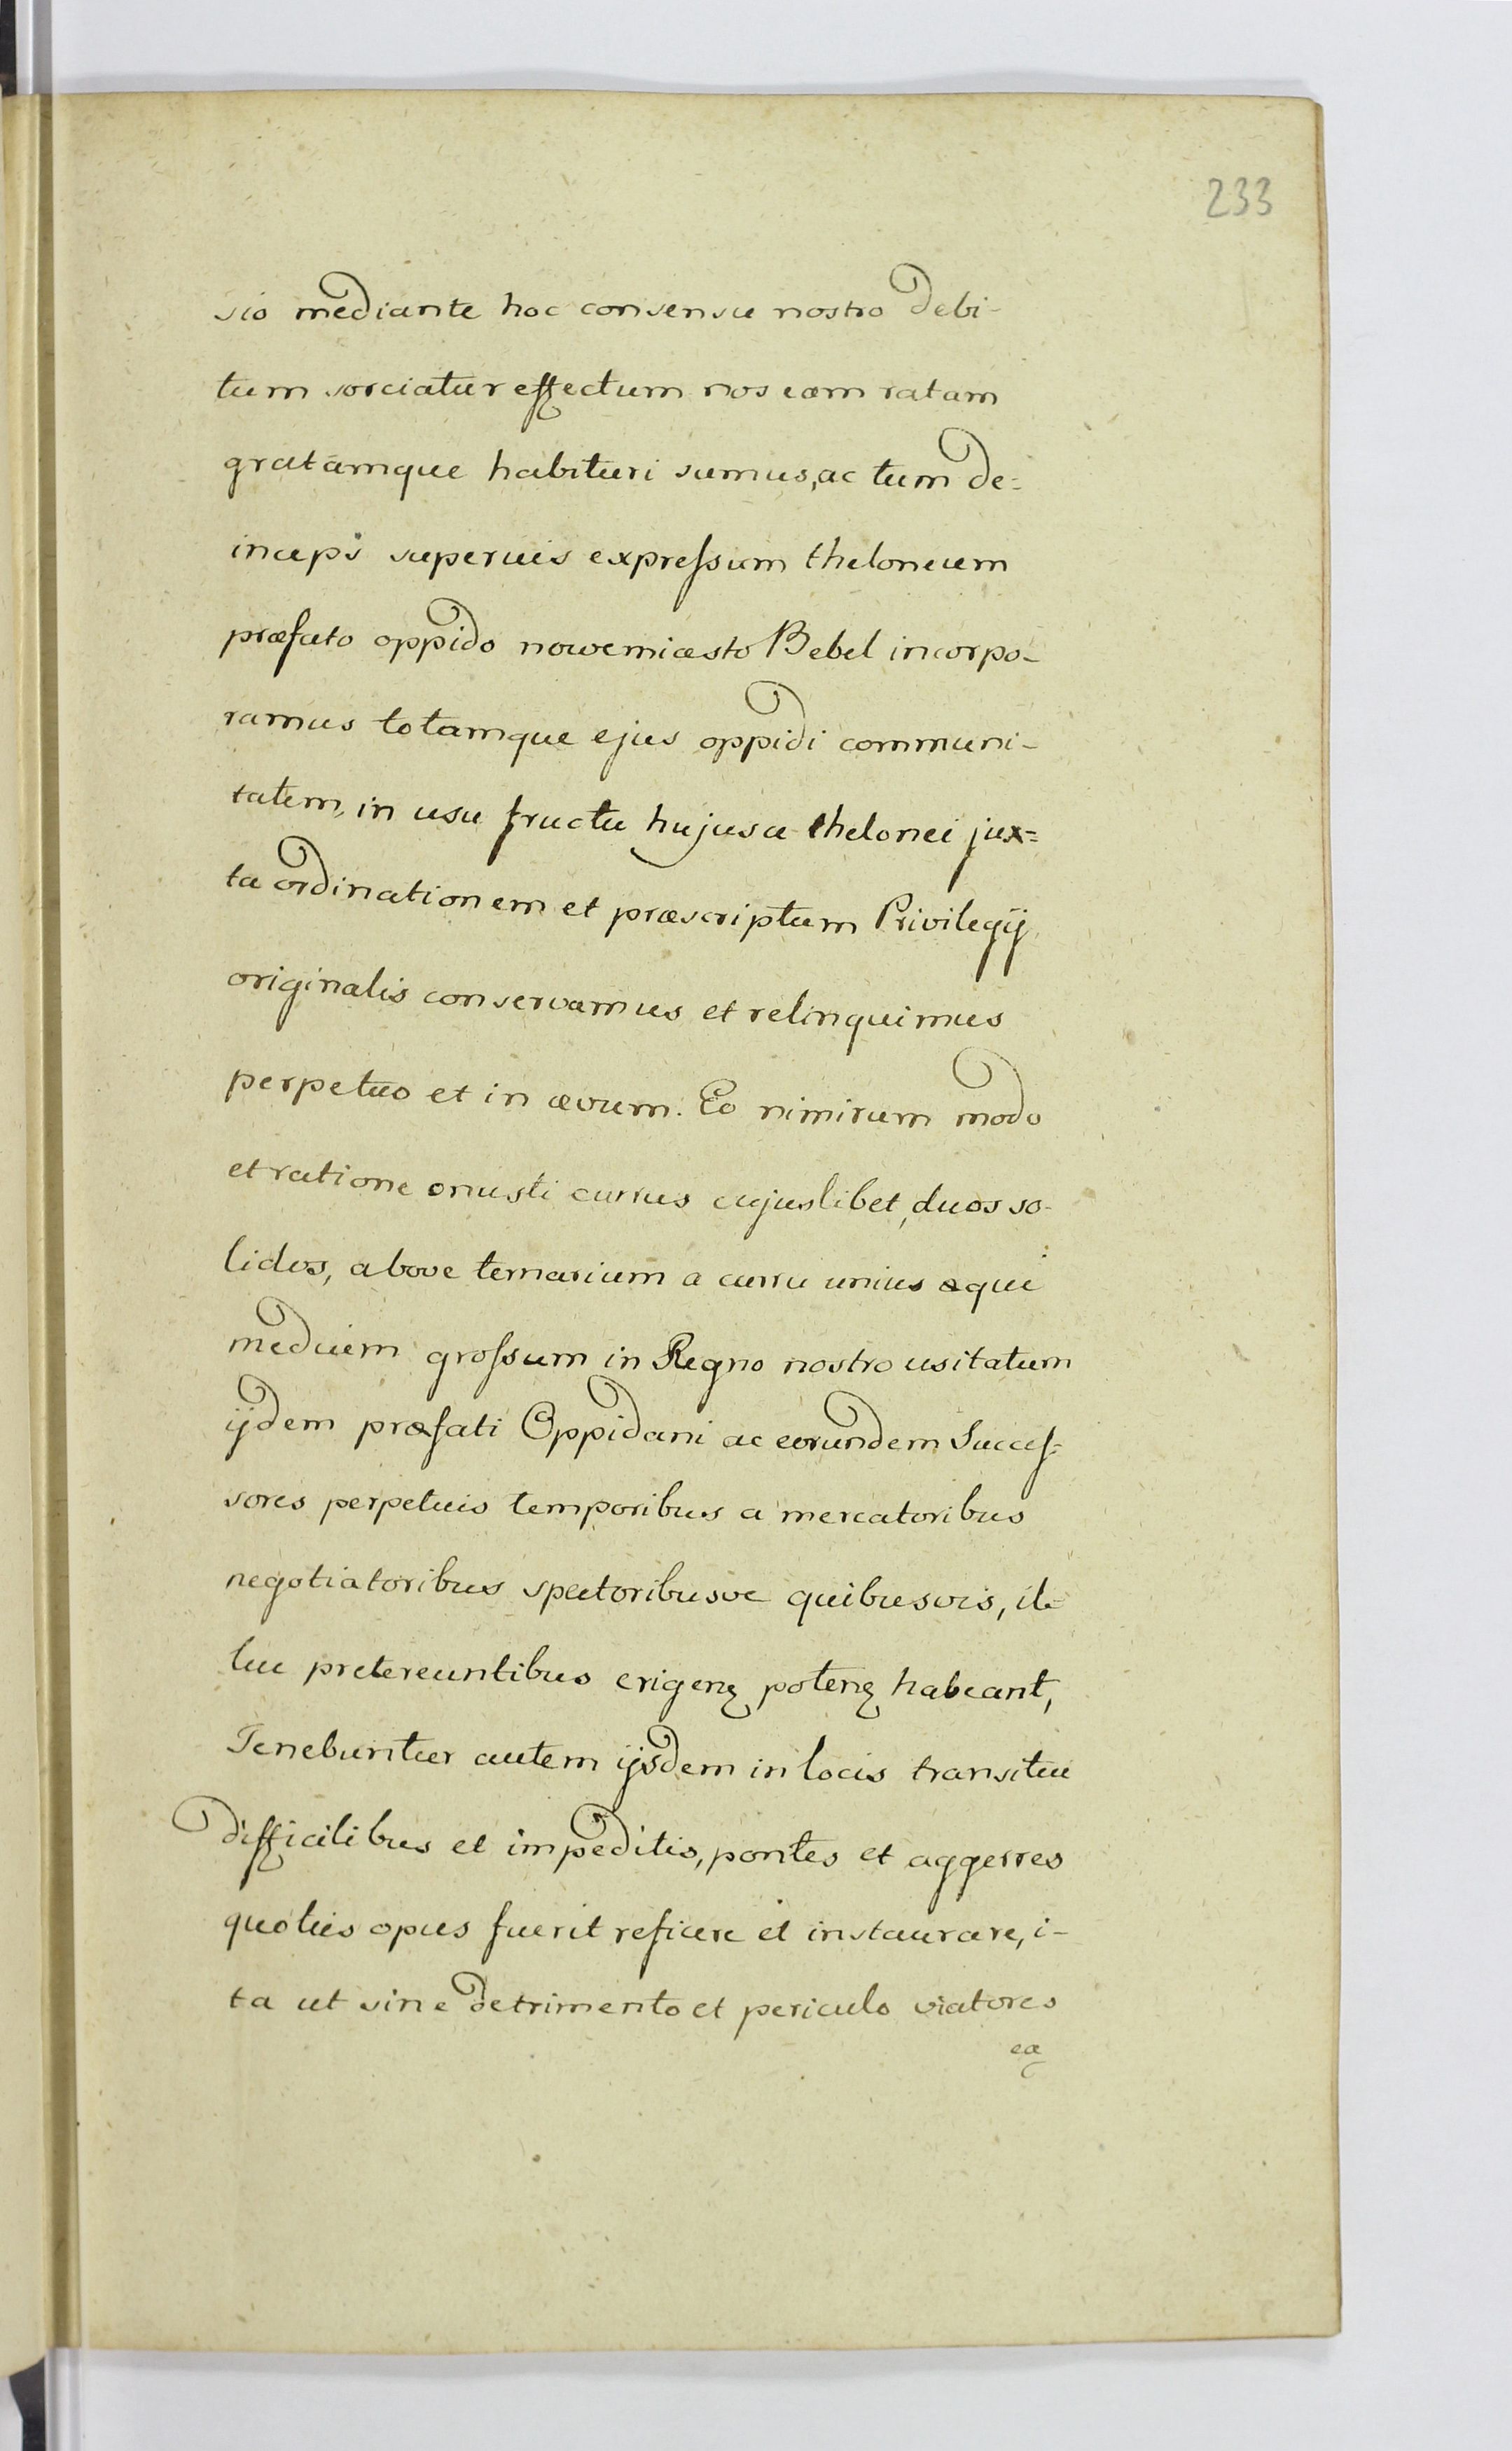 233
sio mediante hoc consensu nostro debi-
tum sorciatur effectum nos eam ratam
gratamque habituri sumus, ac tum de-
inceps superius expressum theloneum
præfato oppido nowemiasto Bebel incorpo-
ramus totamque ejus oppidi communi-
tatem, in usu fructu hujusce thelonei jux=
ta ordinationem et præscriptum Privilegij
originalis conservamus et relinquimus
perpetuo et in ævum. Eo nimirum modo
et ratione onusti currus cujuslibet, duos so-
lidos, a bove ternarium a curru unius equi
medium grossum in Regno nostro usitatum
ijdem præfati Oppidani ac eorundem Succes-
sores perpetuis temporibus a mercatoribus
negotiatoribus vectoribusve quibusvis, il-
luc pretereuntibus exigen potem habeant,
Tenebuntur autem ijsdem in locis transitui
difficilibus et impeditis, pontes et aggerres
quoties opus fuerit reficere et instaurare, i-
ta ut sine detrimento et periculo viatores
ea